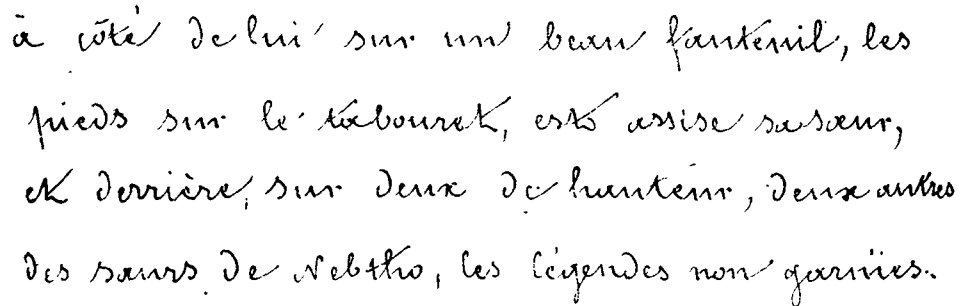 à côté de lui sur un beau fauteuil, les
pieds sur le tabouret, est assise sa sœur,
et derrière, sur deux de hauteur, deux autres
des sœurs de Nebtho, les légendes non garnies.